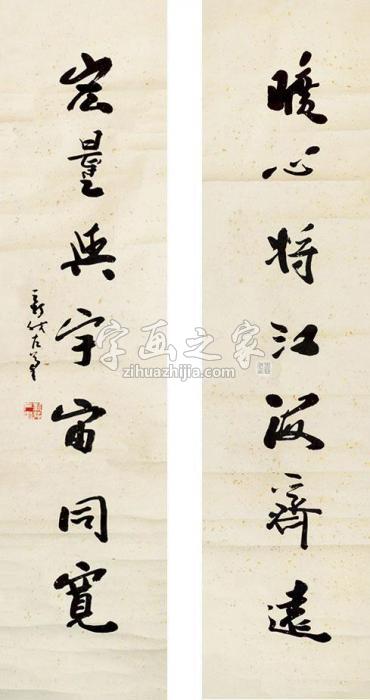 暖心将江海齊遠
宏量與宇宙同寬
字画之家
zihuazhijia.com